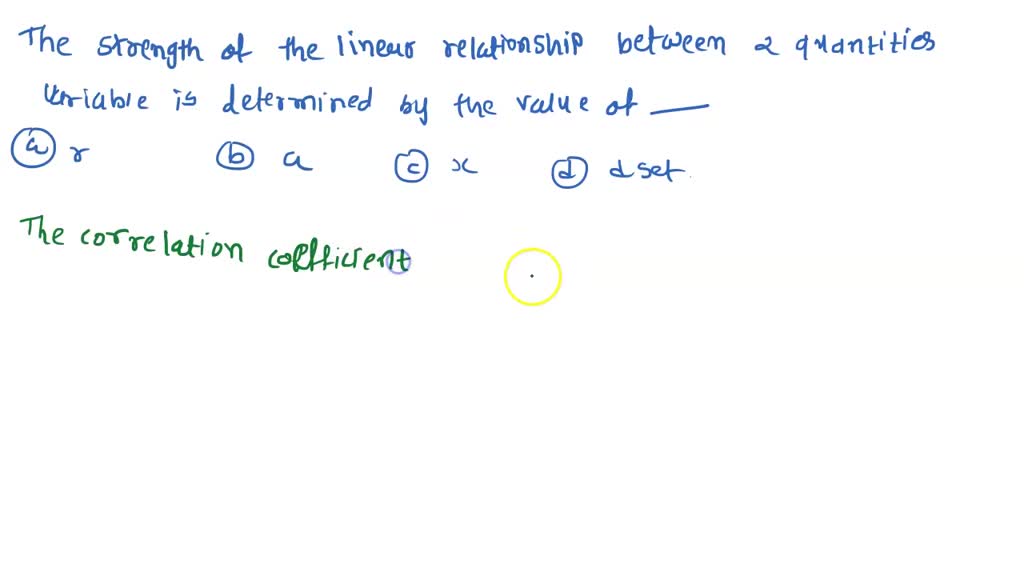 The strength of the linear relationship between 2 quantities
variable is determined by the value of __
(a) r (b) a (c) x (d) dset.
The correlation coefficient